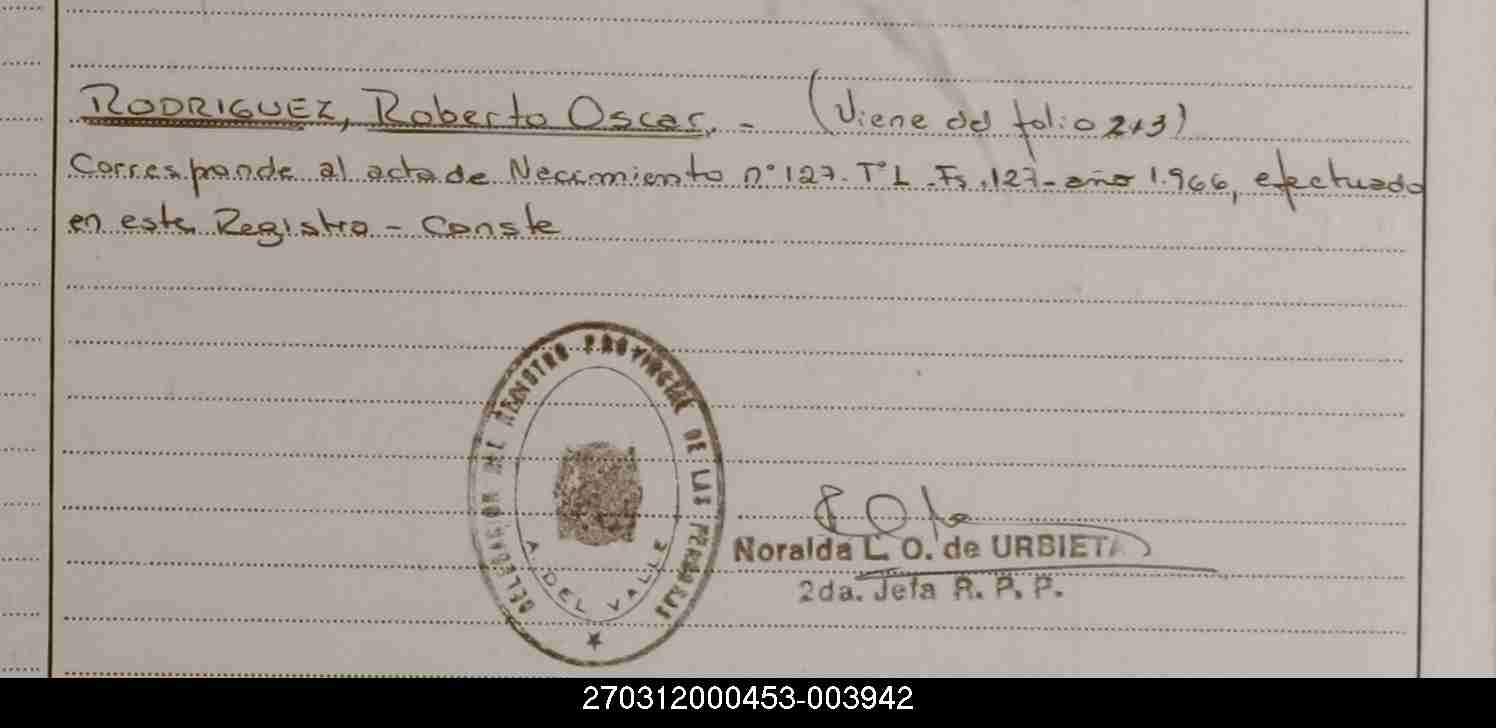 RODRIGUEZ, Roberto Oscar. - (Viene del folio 243)
Corresponde al acta de Nacimiento n° 127. T° 1. Fs. 127 - año 1.966, efectuado
en este Registro - Conste
DELEGACION DEL REGISTRO PROVINCIAL DE LAS PERSONAS
A. DEL VALLE
Noralda L. O. de URBIETA
2da. Jefa R. P. P.
270312000453-003942